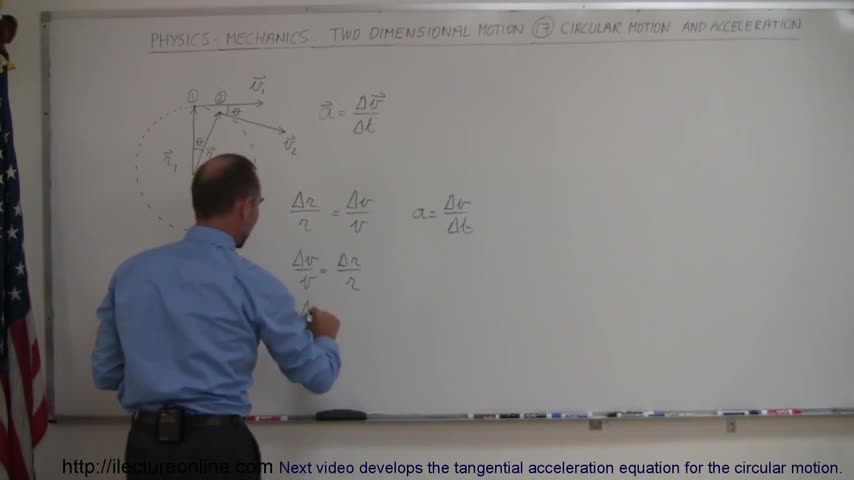 PHYSICS - MECHANICS. TWO DIMENSIONAL MOTION ⑰ CIRCULAR MOTION AND ACCELERATION
① ② v⃗₁
θ
a⃗ = Δv⃗/Δt
θ v⃗₂
r⃗₁
Δr/r = Δv/v a = Δv/Δt
Δv/v = Δr/r
Δ
http://ilectureonline.com Next video develops the tangential acceleration equation for the circular motion.